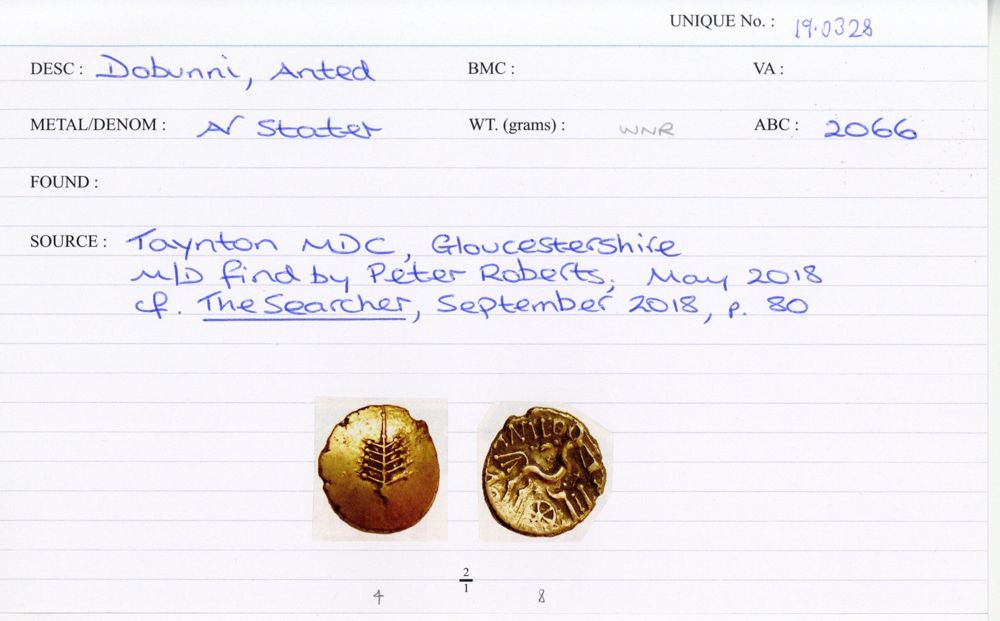 UNIQUE No. : 19.0328
DESC : Dobunni, Anted BMC : VA :
METAL/DENOM : AV Stater WT. (grams) : WNR ABC : 2066
FOUND :
SOURCE : Taynton MDC, Gloucestershire
M/D find by Peter Roberts, May 2018
cf. The Searcher, September 2018, p. 80
2
1
4 8